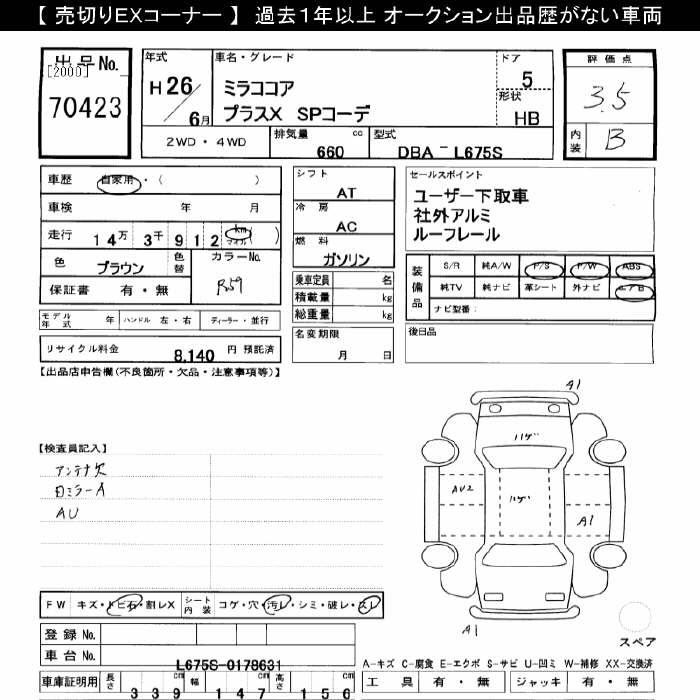 【 売切りEXコーナー 】 過去１年以上 オークション出品歴がない車両
出品No. [2000] 70423
年式 H26/6月
車名・グレード ミラココア プラスX SPコーデ
ドア 5
形状 HB
評価点 3.5
内装 B
2WD・4WD
排気量 660 cc
型式 DBA - L675S
車歴 自家用・( )
車検 年 月
走行 14万 3千 9 1 2 km マイル( )
色 ブラウン
色替
カラーNo. R59
保証書 有・無
モデル年式 年
ハンドル 左・右
ディーラー・並行
リサイクル料金 8,140 円 預託済
シフト AT
冷房 AC
燃料 ガソリン
乗車定員 名
積載量 kg
総重量 kg
名変期限 月 日
セールスポイント
ユーザー下取車
社外アルミ
ルーフレール
装備品 S/R 純A/W P/S P/W ABS
純TV 純ナビ 革シート 外ナビ エアB
ナビ型番:
後日品
【出品店申告欄(不良箇所・欠品・注意事項等)】
【検査員記入】
アンテナ欠
日ミラーA
AU
A1
ハゲ
AU2
ハゲ
A1
A1
スペア
FW キズ・トビ石・割レX
シート内装 コゲ・穴・汚レ・シミ・破レ・スレ
登録 No.
車台 No. L675S-0178631
車庫証明用 長さ 339 cm 幅 147 cm 高さ 156 cm
A-キズ C-腐食 E-エクボ S-サビ U-凹ミ W-補修 XX-交換済
工具 有・無 ジャッキ 有・無